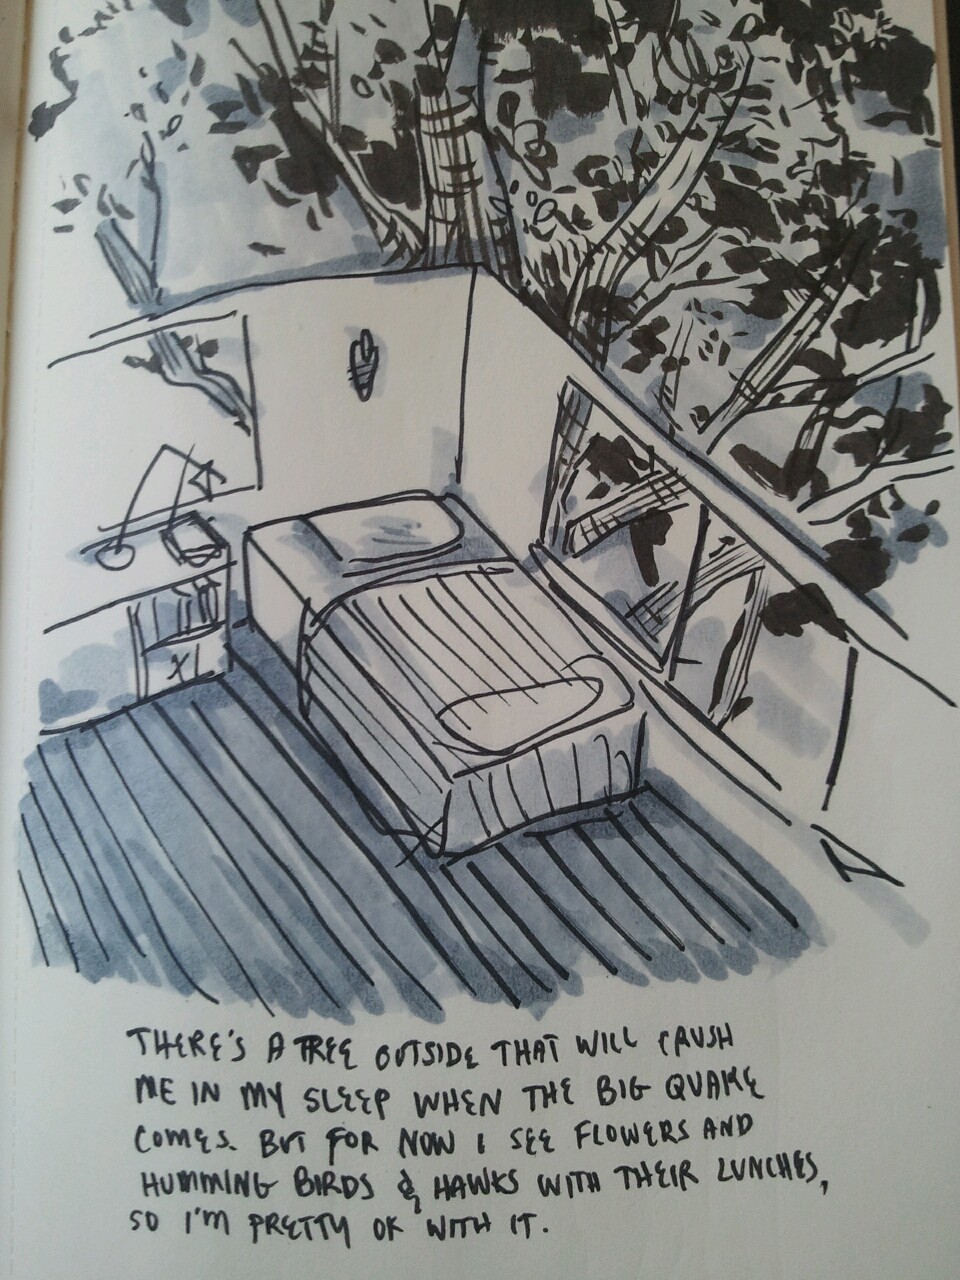 THERE'S A TREE OUTSIDE THAT WILL CRUSH
ME IN MY SLEEP WHEN THE BIG QUAKE
COMES. BUT FOR NOW I SEE FLOWERS AND
HUMMING BIRDS & HAWKS WITH THEIR LUNCHES,
SO I'M PRETTY OK WITH IT.